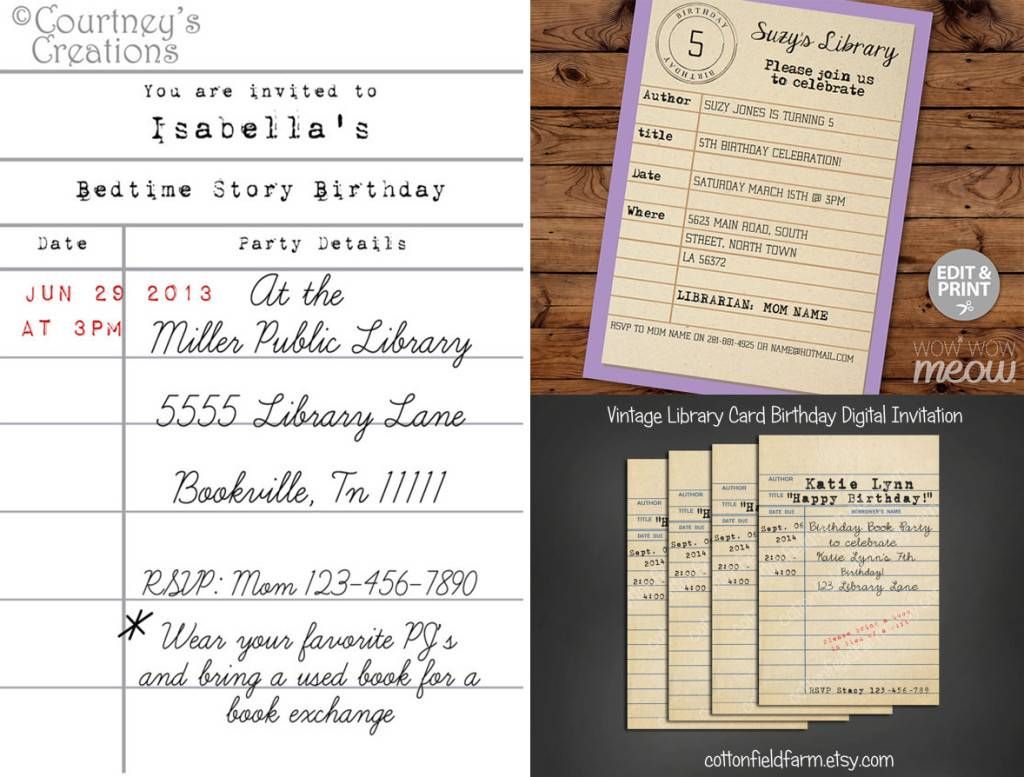 © Courtney's
Creations
You are invited to
Isabella's
Bedtime Story Birthday
Date
Party Details
JUN 29 2013
AT 3PM
At the
Miller Public Library
5555 Library Lane
Bookville, Tn 11111
RSVP: Mom 123-456-7890
* Wear your favorite PJ's
and bring a used book for a
book exchange
BIRTHDAY
5
BIRTHDAY
Suzy's Library
Please join us
to celebrate
Author SUZY JONES IS TURNING 5
title 5TH BIRTHDAY CELEBRATION!
Date SATURDAY MARCH 15TH @ 3PM
Where 5623 MAIN ROAD, SOUTH
STREET, NORTH TOWN
LA 56372
LIBRARIAN: MOM NAME
RSVP TO MOM NAME ON 281-881-4925 OR NAME@HOTMAIL.COM
EDIT &
PRINT
WOW WOW
meow.
Vintage Library Card Birthday Digital Invitation
AUTHOR
TITLE "H
DATE DUE
Sept. 0
2014
2:00 -
4:00
AUTHOR
TITLE "H
DATE DUE
Sept. 0
2014
2:00 -
4:00
AUTHOR
TITLE "H
DATE DUE
Sept. 0
2014
2:00 -
4:00
AUTHOR Katie Lynn
TITLE "Happy Birthday!"
DATE DUE BORROWER'S NAME
Sept. 06 Birthday Book Party
2014 to celebrate
2:00 - Katie Lynn's 7th
4:00 Birthday!
123 Library Lane
please bring a book
in lieu of a
RSVP Stacy 123-456-789
cottonfieldfarm.etsy.com